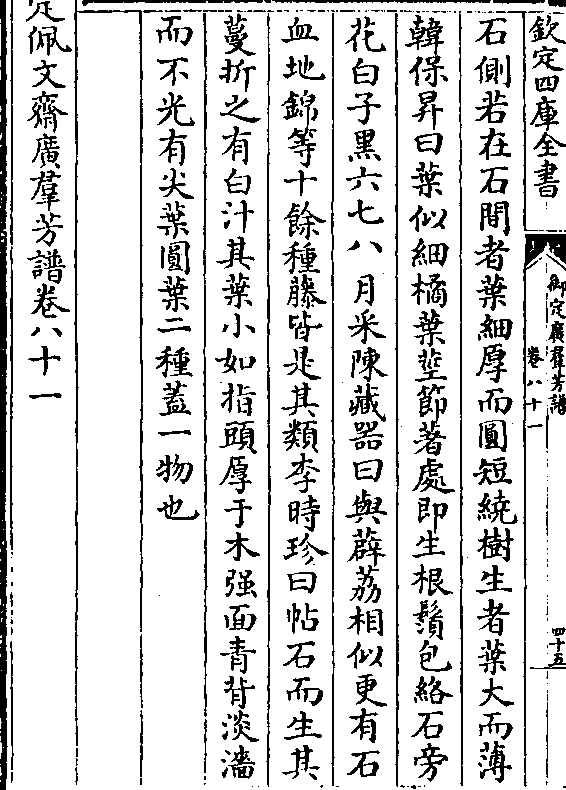 欽定四庫全書
御定廣羣芳譜
卷八十一
四十五
石側若在石間者葉細厚而圓短繞樹生者葉大而薄
韓保昇曰葉似細橘葉莖節著處即生根鬚包絡石旁
花白子黒六七八月采陳藏器曰與薜荔相似更有石
血地錦等十餘種藤皆是其類李時珍曰帖石而生其
蔓折之有白汁其葉小如指頭厚于木强面青背淡濇
而不光有尖葉圓葉二種葢一物也
定佩文齋廣羣芳譜卷八十一